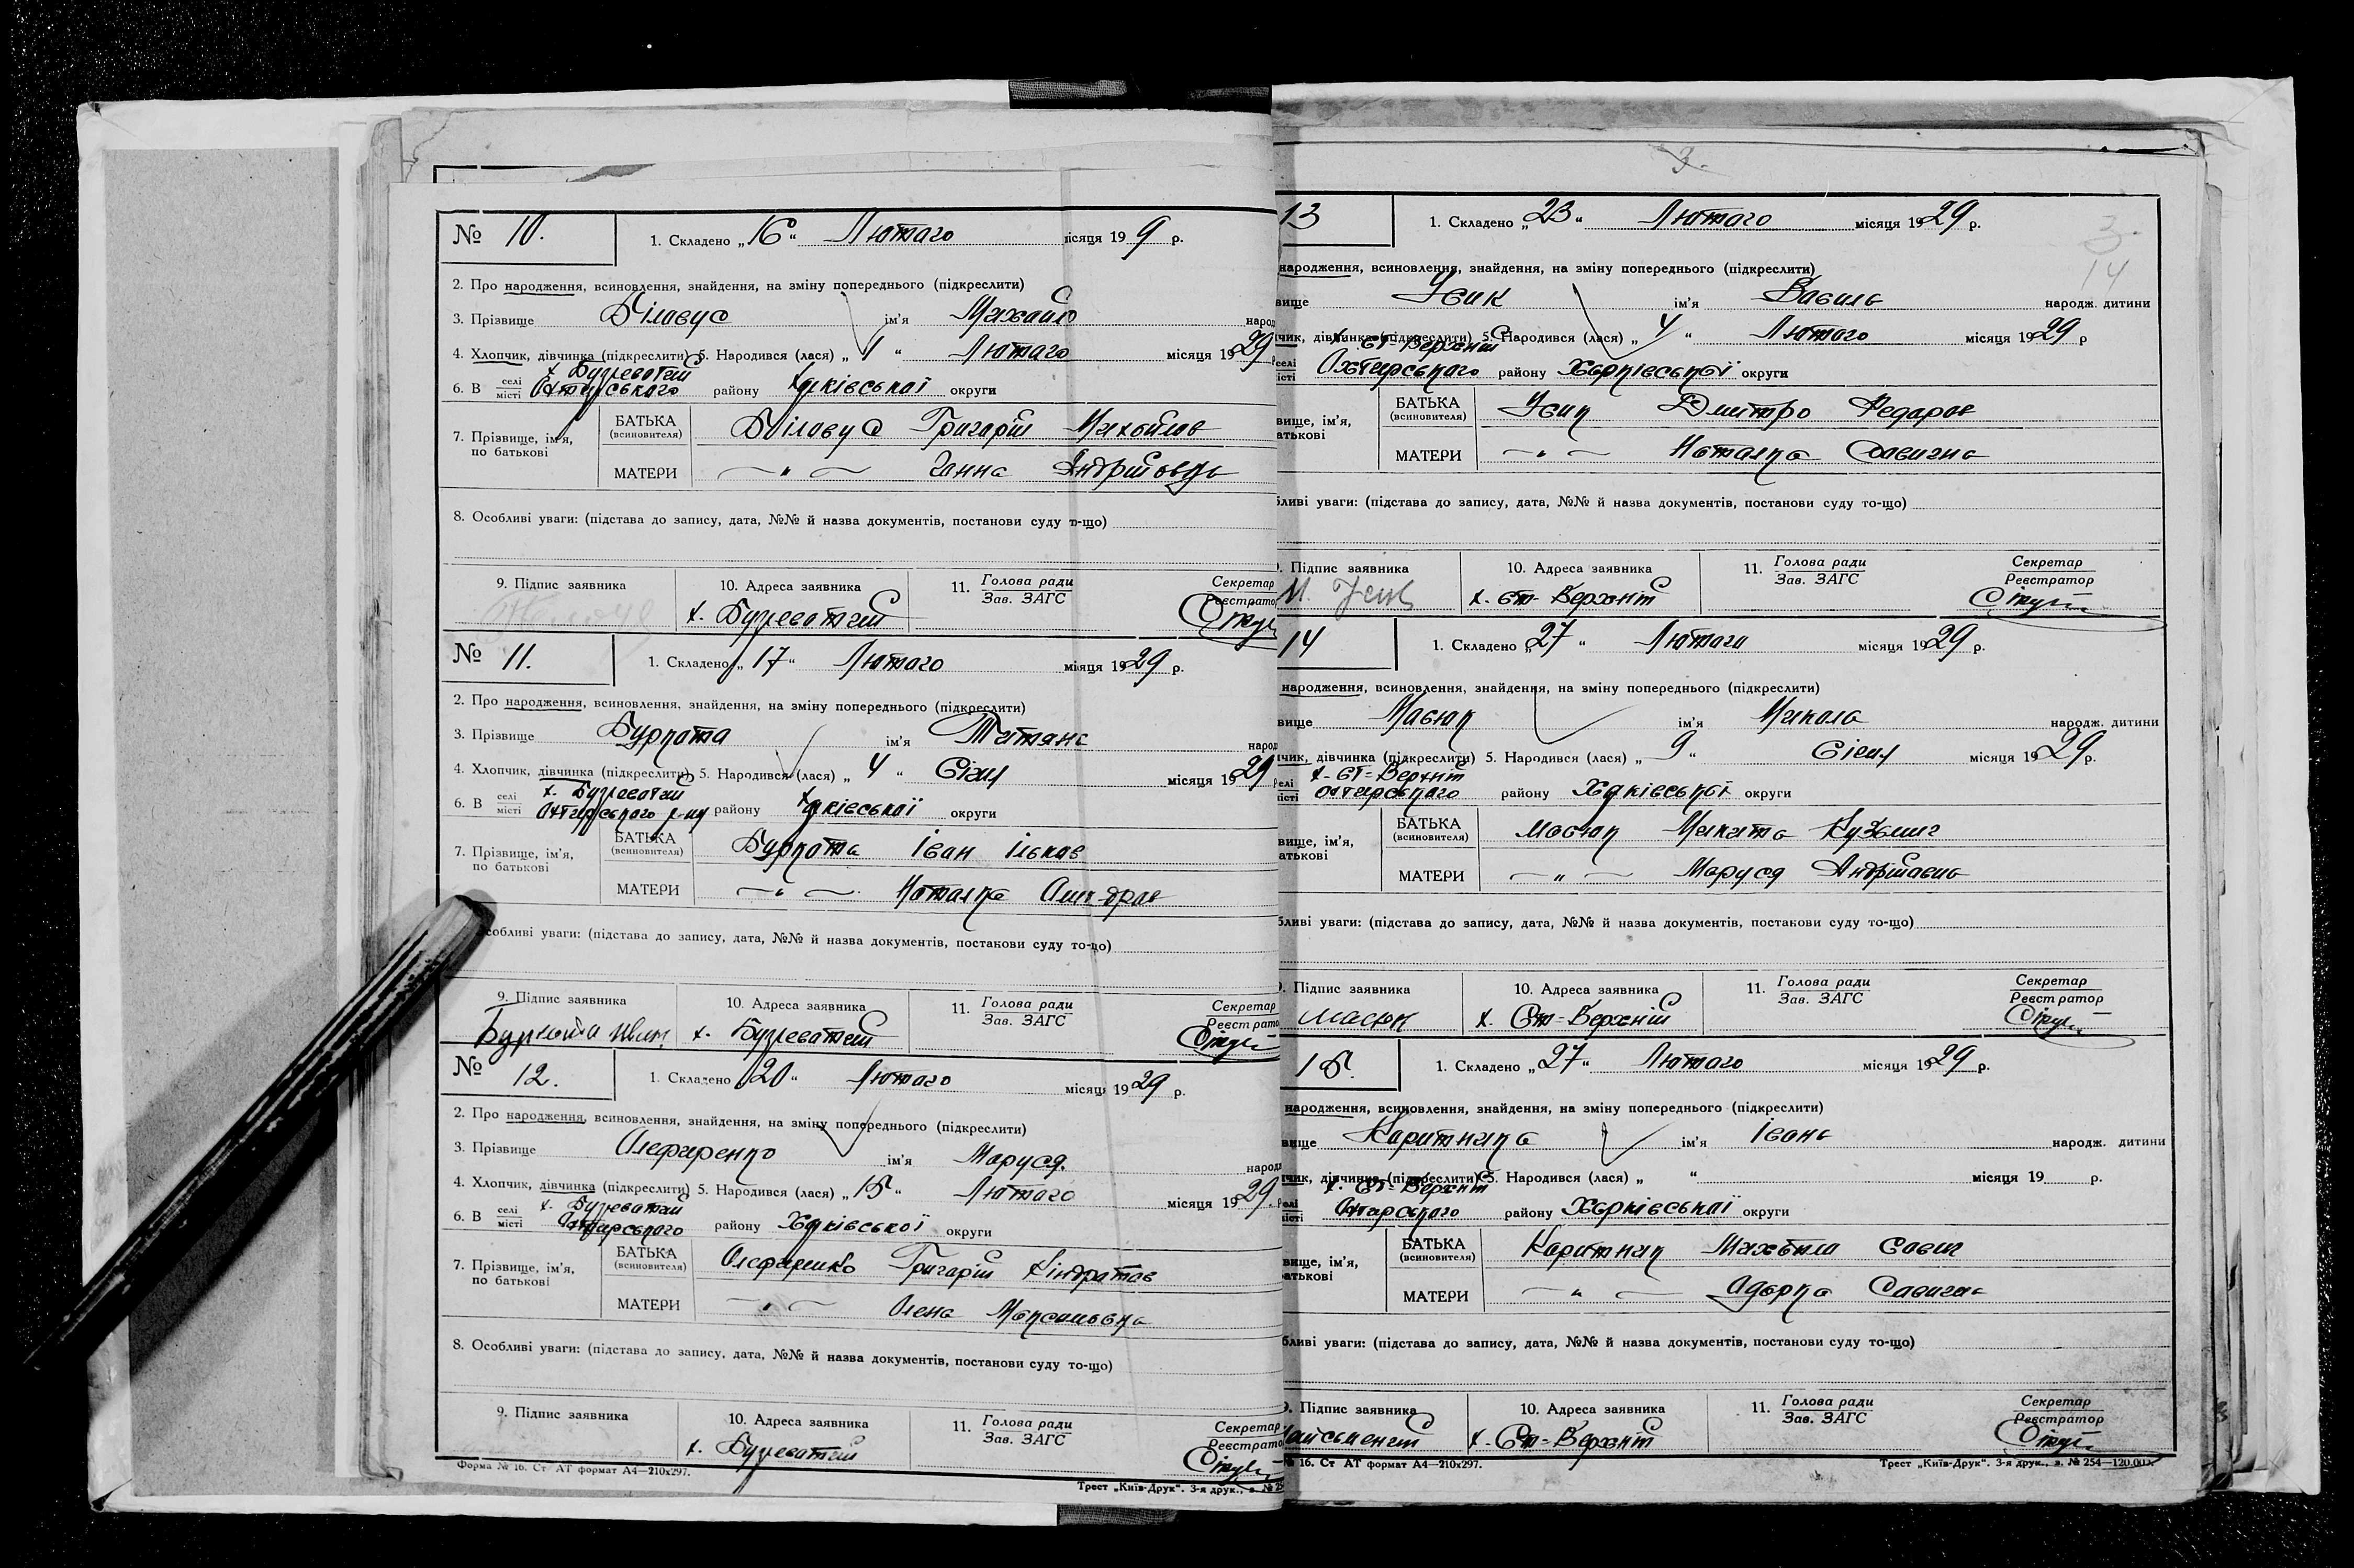 № 10.
1. Складено „16“ Лютаго місяця 19 9 р.
2. Про народження, всиновлення, знайдення, на зміну попереднього (підкреслити)
3. Прізвище Біловус ім'я Михайло народ
4. Хлопчик, дівчинка (підкреслити) 5. Народився (лася) „1“ Лютаго місяця 1929
х. Буреватий
6. В селі місті району округи
7. Прізвище, ім'я, по батькові
БАТЬКА (всиновителя) Біловус Григорій
МАТЕРИ —„— Ганна
8. Особливі уваги: (підстава до запису, дата, №№ й назва документів, постанови суду то-що)
9. Підпис заявника 10. Адреса заявника 11. Голова ради Зав. ЗАГС Секретар Реєстратор
х. Буреватий
№ 11.
1. Складено „17“ Лютаго місяця 1929 р.
2. Про народження, всиновлення, знайдення, на зміну попереднього (підкреслити)
3. Прізвище Буркота ім'я Титяна народ
4. Хлопчик, дівчинка (підкреслити) 5. Народився (лася) „4“ Січня місяця 1929
х. Буреватий
6. В селі місті району округи
7. Прізвище, ім'я, по батькові
БАТЬКА (всиновителя) Буркота Іван Ільков
МАТЕРИ —„— Наталка
Особливі уваги: (підстава до запису, дата, №№ й назва документів, постанови суду то-що)
9. Підпис заявника 10. Адреса заявника 11. Голова ради Зав. ЗАГС Секретар Реєстратор
х. Буреватий
№ 12.
1. Складено „20“ Лютаго місяця 1929 р.
2. Про народження, всиновлення, знайдення, на зміну попереднього (підкреслити)
3. Прізвище Олефиренко ім'я Маруся. народ
4. Хлопчик, дівчинка (підкреслити) 5. Народився (лася) „15“ Лютаго місяця 1929.
х. Буреватий
6. В селі місті району округи
7. Прізвище, ім'я, по батькові
БАТЬКА (всиновителя) Олефиренко Григорій Кіндратов
МАТЕРИ —„— Олена Максимовна
8. Особливі уваги: (підстава до запису, дата, №№ й назва документів, постанови суду то-що)
9. Підпис заявника 10. Адреса заявника 11. Голова ради Зав. ЗАГС Секретар Реєстратор
х. Буреватий
Форма № 16. Ст АТ формат А4—210х297.
Трест „Київ-Друк“. 3-я друк.,
3.
13
1. Складено „23“ Лютаго місяця 1929 р.
3.
14
народження, всиновлення, знайдення, на зміну попереднього (підкреслити)
вище Усик ім'я Василь народж. дитини
чик, дівчинка (підкреслити) 5. Народився (лася) „4“ Лютаго місяця 1929 р
х. Ст-Верхній
селі місті району Харківської округи
вище, ім'я, атькові
БАТЬКА (всиновителя) Усик Дмитро Федоров
МАТЕРИ —„— Наталка Савична
бливі уваги: (підстава до запису, дата, №№ й назва документів, постанови суду то-що)
Підпис заявника 10. Адреса заявника 11. Голова ради Зав. ЗАГС Секретар Реєстратор
х. Ст-Верхній
14
1. Складено „27“ Лютаго місяця 1929 р.
народження, всиновлення, знайдення, на зміну попереднього (підкреслити)
вище Масюк ім'я Микола народж. дитини
чик, дівчинка (підкреслити) 5. Народився (лася) „9“ Січня місяця 1929 р.
х. Ст=Верхній
селі місті району округи
вище, ім'я, атькові
БАТЬКА (всиновителя) Масюк Микита Кузьмич
МАТЕРИ —„— Маруся
бливі уваги: (підстава до запису, дата, №№ й назва документів, постакови суду то-що)
Підпис заявника 10. Адреса заявника 11. Голова ради Зав. ЗАГС Секретар Реєстратор
Масюк х. Ст=Верхній
15.
1. Складено „27“ Лютаго місяця 1929 р.
народження, всиновлення, знайдення, на зміну попереднього (підкреслити)
вище Коритника ім'я Івана народж. дитини
чик, дівчинка (підкреслити) 5. Народився (лася) „ “ місяця 19 р.
х. Ст=Верхній
селі місті району Харківської округи
вище, ім'я, атькові
БАТЬКА (всиновителя) Коритник Михайло Савич
МАТЕРИ —„— Савична
бливі уваги: (підстава до запису, дата, №№ й назва документів, постанови суду то-що)
Підпис заявника 10. Адреса заявника 11. Голова ради Зав. ЗАГС Секретар Реєстратор
х. Ст=Верхній
№ 16. Ст АТ формат А4—210х297.
Трест „Київ-Друк“. 3-я друк., з. № 254—120.000.